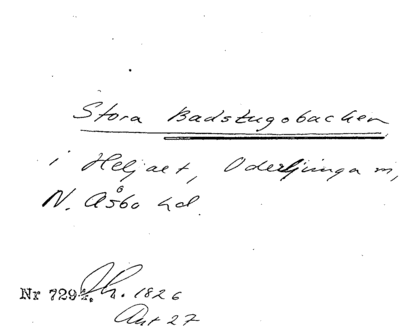 Stora Badstugobacken
i Heljaet, Oderljunga m,
N. Åsbo hd.
Nr 729. 1826
Ant 27